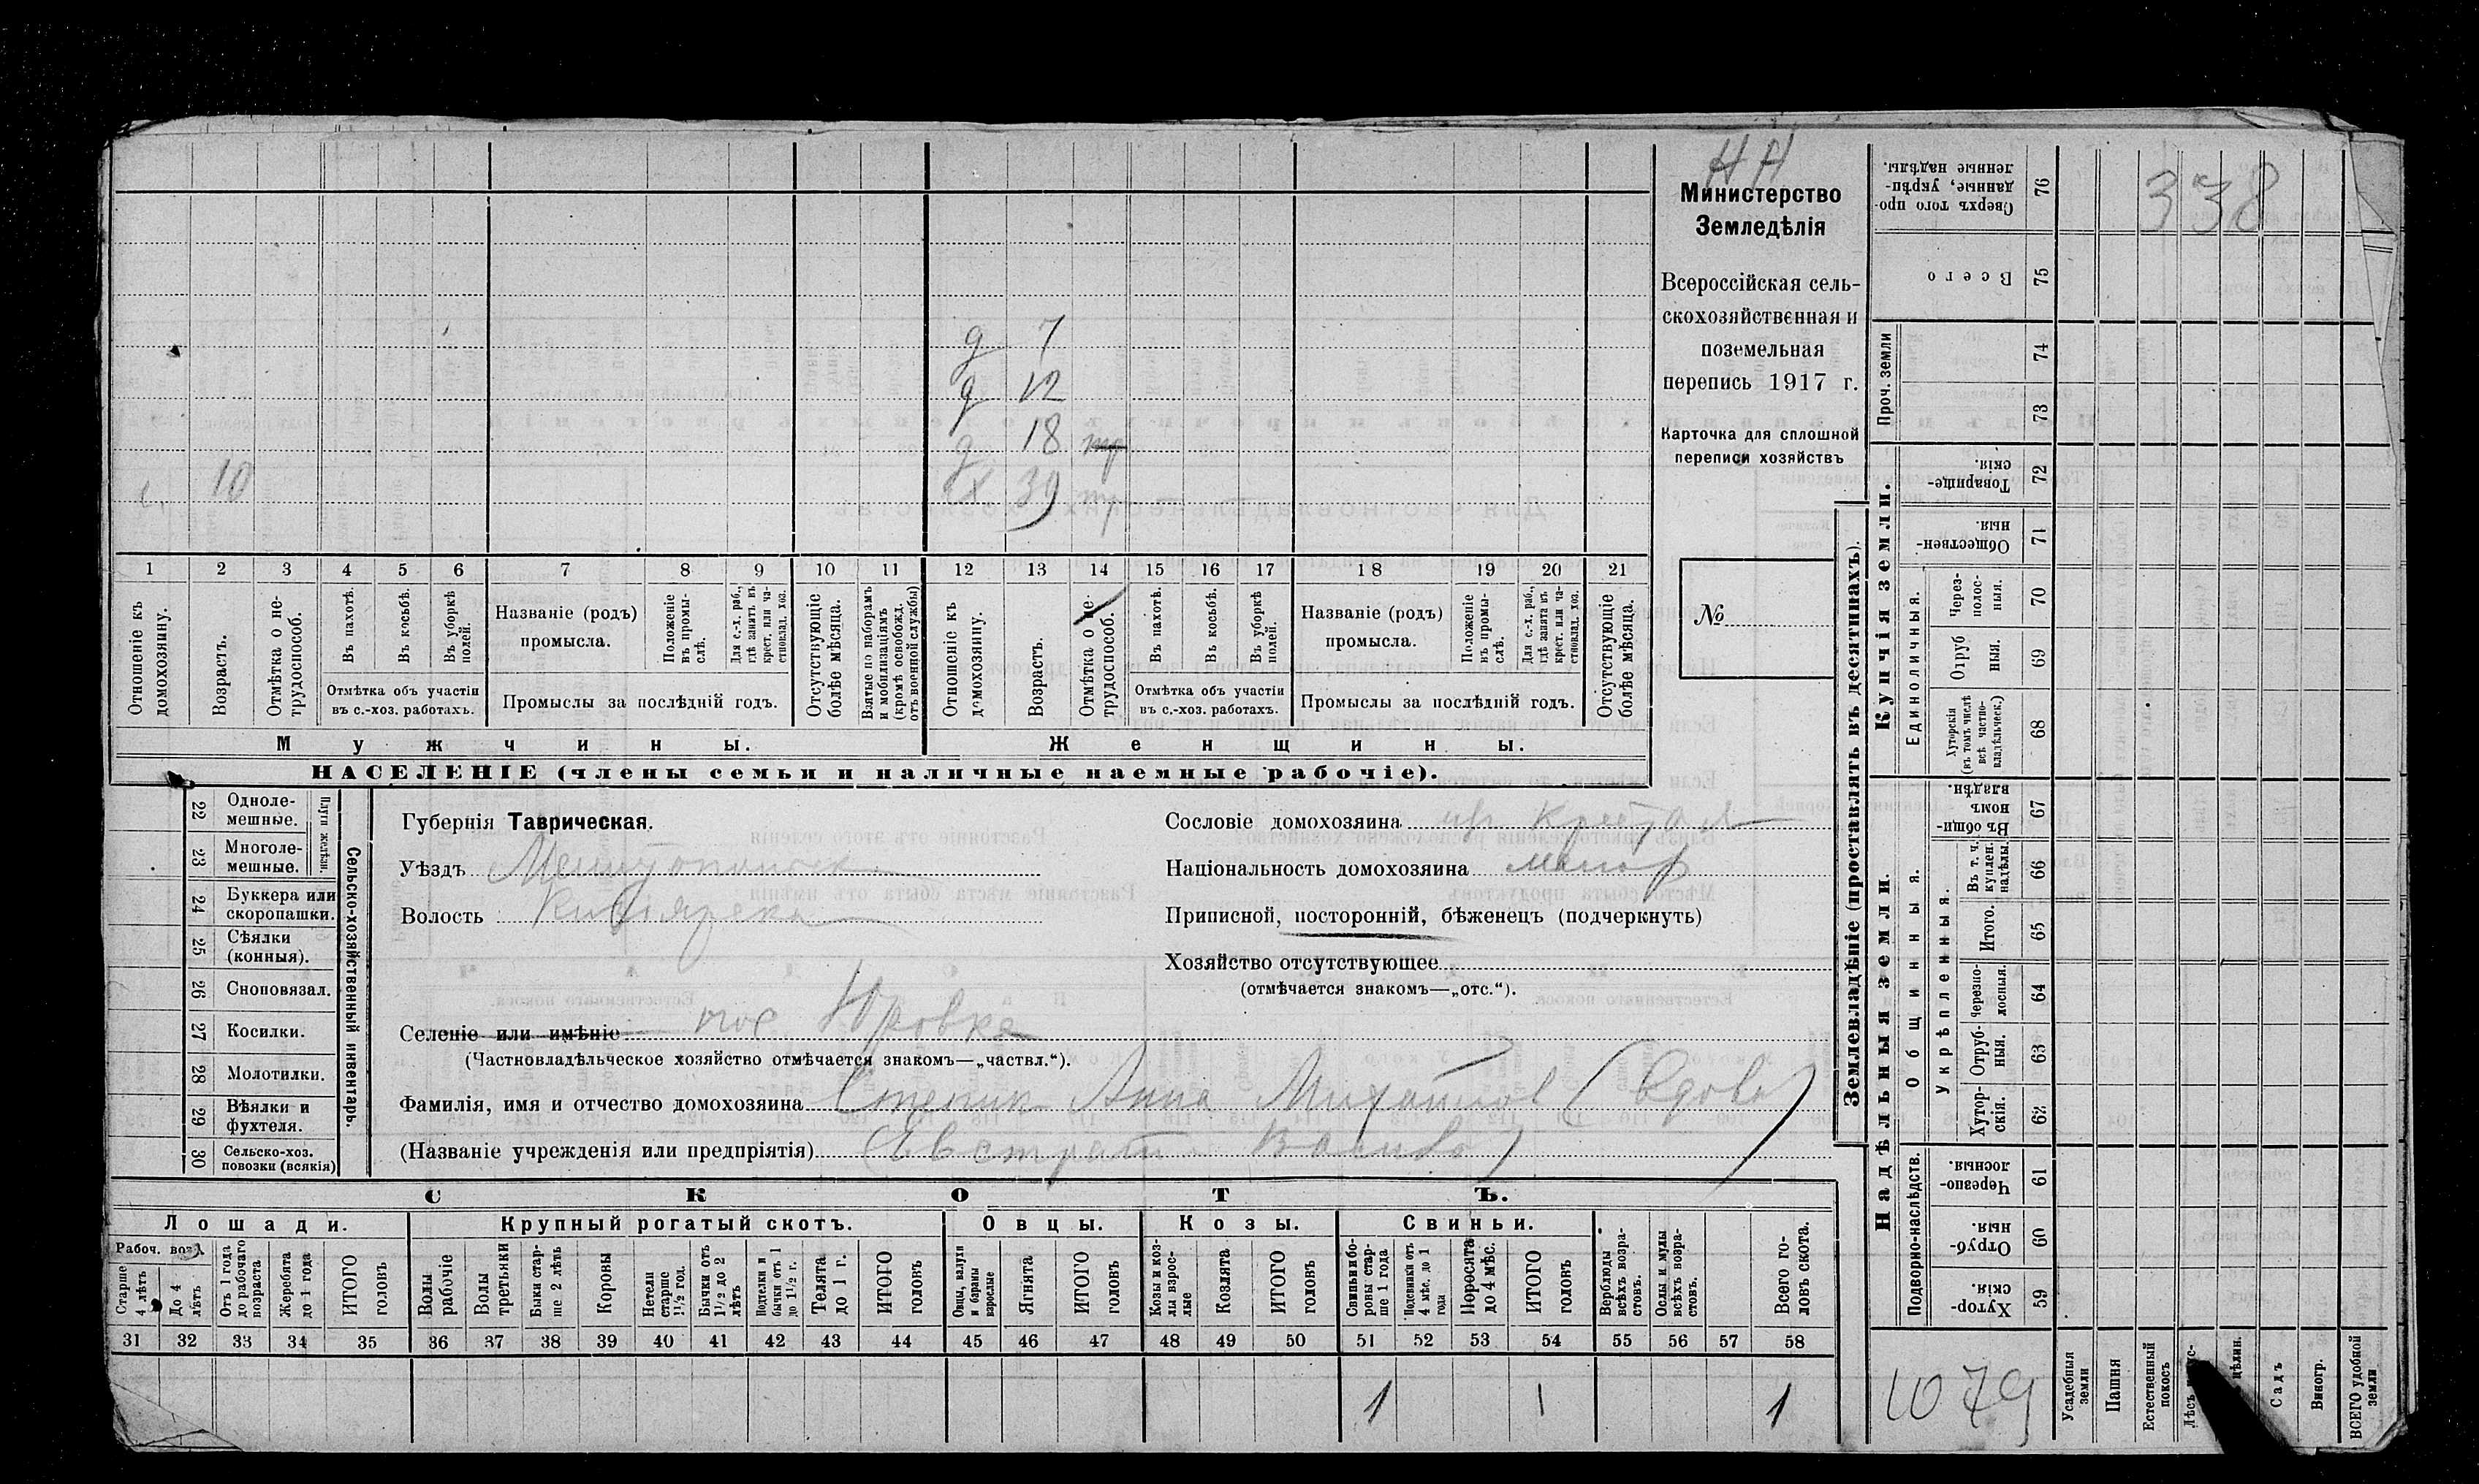 НН
338
Министерство
Земледѣлія
Всероссійская сель-
скохозяйственная и
поземельная
перепись 1917 г.
Карточка для сплошной
переписи хозяйствъ
№
д 7
д 12
д 18 тр
10
х 39 тр
1 2 3 4 5 6 7 8 9 10 11 12 13 14 15 16 17 18 19 20 21
Отношеніе къ домохозяину.
Возрастъ.
Отмѣтка о не-трудоспособ.
Въ пахотѣ.
Въ косьбѣ.
Въ уборкѣ полей.
Отмѣтка объ участіи
въ с.-хоз. работахъ.
Названіе (родъ)
промысла.
Положеніе въ промы-слѣ.
Для с.-х. раб., гдѣ занятъ въ крест. или ча-стновлад. хоз.
Промыслы за послѣдній годъ.
Отсутствующіе болѣе мѣсяца.
Взятые по наборамъ и мобилизаціямъ (кромѣ освобожд. отъ военной службы)
Отношеніе къ домохозяину.
Возрастъ.
Отмѣтка о не-трудоспособ.
Въ пахотѣ.
Въ косьбѣ.
Въ уборкѣ полей.
Отмѣтка объ участіи
въ с.-хоз. работахъ.
Названіе (родъ)
промысла.
Положеніе въ промы-слѣ.
Для с.-х. раб., гдѣ занятъ въ крест. или ча-стновлад. хоз.
Промыслы за послѣдній годъ.
Отсутствующіе болѣе мѣсяца.
Мужчины.
Женщины.
НАСЕЛЕНІЕ (члены семьи и наличные наемные рабочіе).
22 Одноле-мешные.
23 Многоле-мешные.
Плуги желѣзн.
24 Буккера или скоропашки.
25 Сѣялки (конныя).
26 Сноповязал.
27 Косилки.
28 Молотилки.
29 Вѣялки и фухтеля.
30 Сельско-хоз. повозки (всякія)
Сельско-хозяйственный инвентарь.
Губернія Таврическая.
Уѣздъ
Волость
Селеніе или имѣніе пос Юровка
(Частновладѣльческое хозяйство отмѣчается знакомъ—„частвл.“).
Фамилія, имя и отчество домохозяина Степик Анна Михайлов (вдова)
(Названіе учрежденія или предпріятія)
Сословіе домохозяина
Національность домохозяина малор
Приписной, посторонній, бѣженецъ (подчеркнуть)
Хозяйство отсутствующее
(отмѣчается знакомъ—„отс.“).
СКОТЪ.
Лошади.
Крупный рогатый скотъ.
Овцы.
Козы.
Свиньи.
Рабоч. воз.
Старше 4 лѣтъ
До 4 лѣтъ
Отъ 1 года до рабочаго возраста
Жеребята до 1 года
ИТОГО головъ
Волы рабочіе
Волы третьяки
Быки стар-ше 2 лѣтъ
Коровы
Нетели старше 1½ год.
Бычки отъ 1½ до 2 лѣтъ
Подтелки и бычки отъ 1 до 1½ г.
Телята до 1 г.
ИТОГО головъ
Овцы, валухи и бараны взрослые
Ягнята
ИТОГО головъ
Козы и коз-лы взрос-лые
Козлята
ИТОГО головъ
Свиньи и бо-ровы стар-ше 1 года
Подсвинки отъ 4 мѣс. до 1 года
Поросята до 4 мѣс.
ИТОГО головъ
Верблюды всѣхъ возра-стовъ.
Ослы и мулы всѣхъ возра-стовъ.
Всего го-ловъ скота.
31 32 33 34 35 36 37 38 39 40 41 42 43 44 45 46 47 48 49 50 51 52 53 54 55 56 57 58
1 1 1
Землевладѣніе (проставлять въ десятинахъ).
Купчія земли.
Надѣльныя земли.
Сверхъ того про-данные, укрѣп-ленные надѣлы. 76
Всего 75
Проч. земли
74
73
Товарище-скія. 72
Обществен-ныя. 71
Единоличныя.
Через-полос-ныя. 70
Отруб ныя. 69
Хуторскія (въ томъ числѣ всѣ частно-владѣльческ.) 68
Общинныя.
Въ общи-номъ владѣн. 67
Укрѣпленныя.
Въ т. ч. куплен. надѣлы. 66
Итого. 65
Черезпо-лосныя. 64
Отруб-ныя. 63
Хутор-скія. 62
Подворно-наслѣдств.
Черезпо-лосныя. 61
Отруб-ныя. 60
Хутор-скія. 59
1079
Усадебныя земли
Пашня
Естественный покосъ
Садъ
Виногр.
ВСЕГО удобной земли